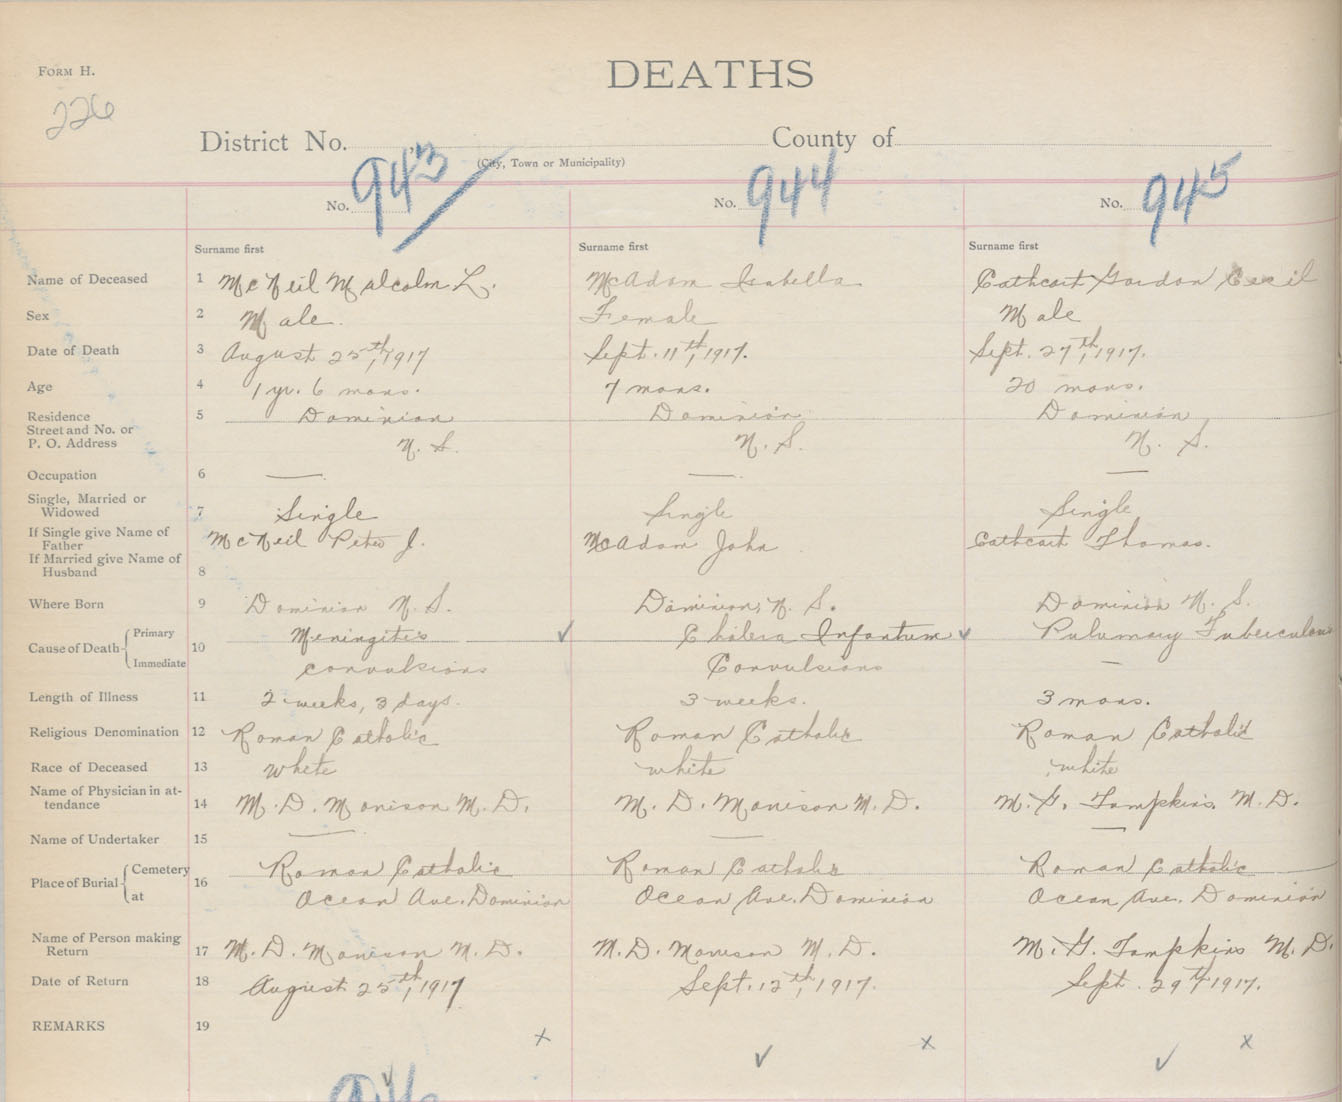 FORM H.
DEATHS
226
District No. County of
(City, Town or Municipality)
No. 943 No. 944 No. 945
Surname first Surname first Surname first
Name of Deceased 1 McNeil Malcolm L. McAdam Isabella Cathcart Gordon Cecil
Sex 2 Male. Female Male
Date of Death 3 August 25th, 1917 Sept. 11th, 1917. Sept. 27th, 1917.
Age 4 1 yr. 6 mons. 7 mons. 20 mons.
Residence 5 Dominion Dominion Dominion
Street and No. or
P. O. Address N. S. N. S. N. S.
Occupation 6 — — —
Single, Married or
Widowed 7 Single Single Single
If Single give Name of
Father McNeil Peter J. McAdam John Cathcart Thomas.
If Married give Name of
Husband 8
Where Born 9 Dominion N. S. Dominion, N. S. Dominion N. S.
Cause of Death Primary 10 Meningitis ✓ Cholera Infantum ✓ Pulumary Tuberculous
Immediate convulsions Convulsions —
Length of Illness 11 2 weeks, 3 days. 3 weeks. 3 mons.
Religious Denomination 12 Roman Catholic Roman Catholic Roman Catholic
Race of Deceased 13 white white white
Name of Physician in at-
tendance 14 M. D. Morrison M. D. M. D. Morrison M. D. M. G. Tompkins, M. D.
Name of Undertaker 15 — — —
Place of Burial Cemetery 16 Roman Catholic Roman Catholic Roman Catholic
at Ocean Ave. Dominion Ocean Ave. Dominion Ocean Ave. Dominion
Name of Person making
Return 17 M. D. Morrison M. D. M. D. Morrison M. D. M. G. Tompkins M. D.
Date of Return 18 August 25th, 1917 Sept. 12th, 1917. Sept. 29th 1917.
REMARKS 19
x ✓ x ✓ x